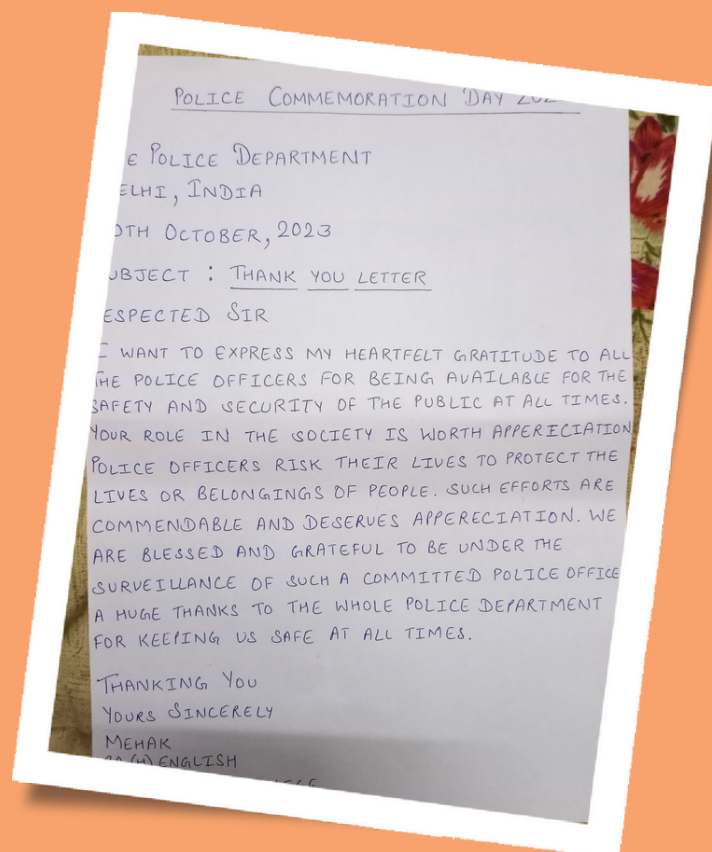 POLICE COMMEMORATION DAY
POLICE DEPARTMENT
INDIA
OCTOBER, 2023
: THANK YOU LETTER
SIR
I WANT TO EXPRESS MY HEARTFELT GRATITUDE TO ALL
THE POLICE OFFICERS FOR BEING AVAILABLE FOR THE
SAFETY AND SECURITY OF THE PUBLIC AT ALL TIMES.
YOUR ROLE IN THE SOCIETY IS WORTH APPERICIATION
POLICE OFFICERS RISK THEIR LIVES TO PROTECT THE
LIVES OR BELONGINGS OF PEOPLE. SUCH EFFORTS ARE
COMMENDABLE AND DESERVES APPERECIATION. WE
ARE BLESSED AND GRATEFUL TO BE UNDER THE
SURVEILLANCE OF SUCH A COMMITTED POLICE OFFICE
A HUGE THANKS TO THE WHOLE POLICE DEPARTMENT
FOR KEEPING US SAFE AT ALL TIMES.
THANKING YOU
YOURS SINCERELY
MEHAK
(H) ENGLISH